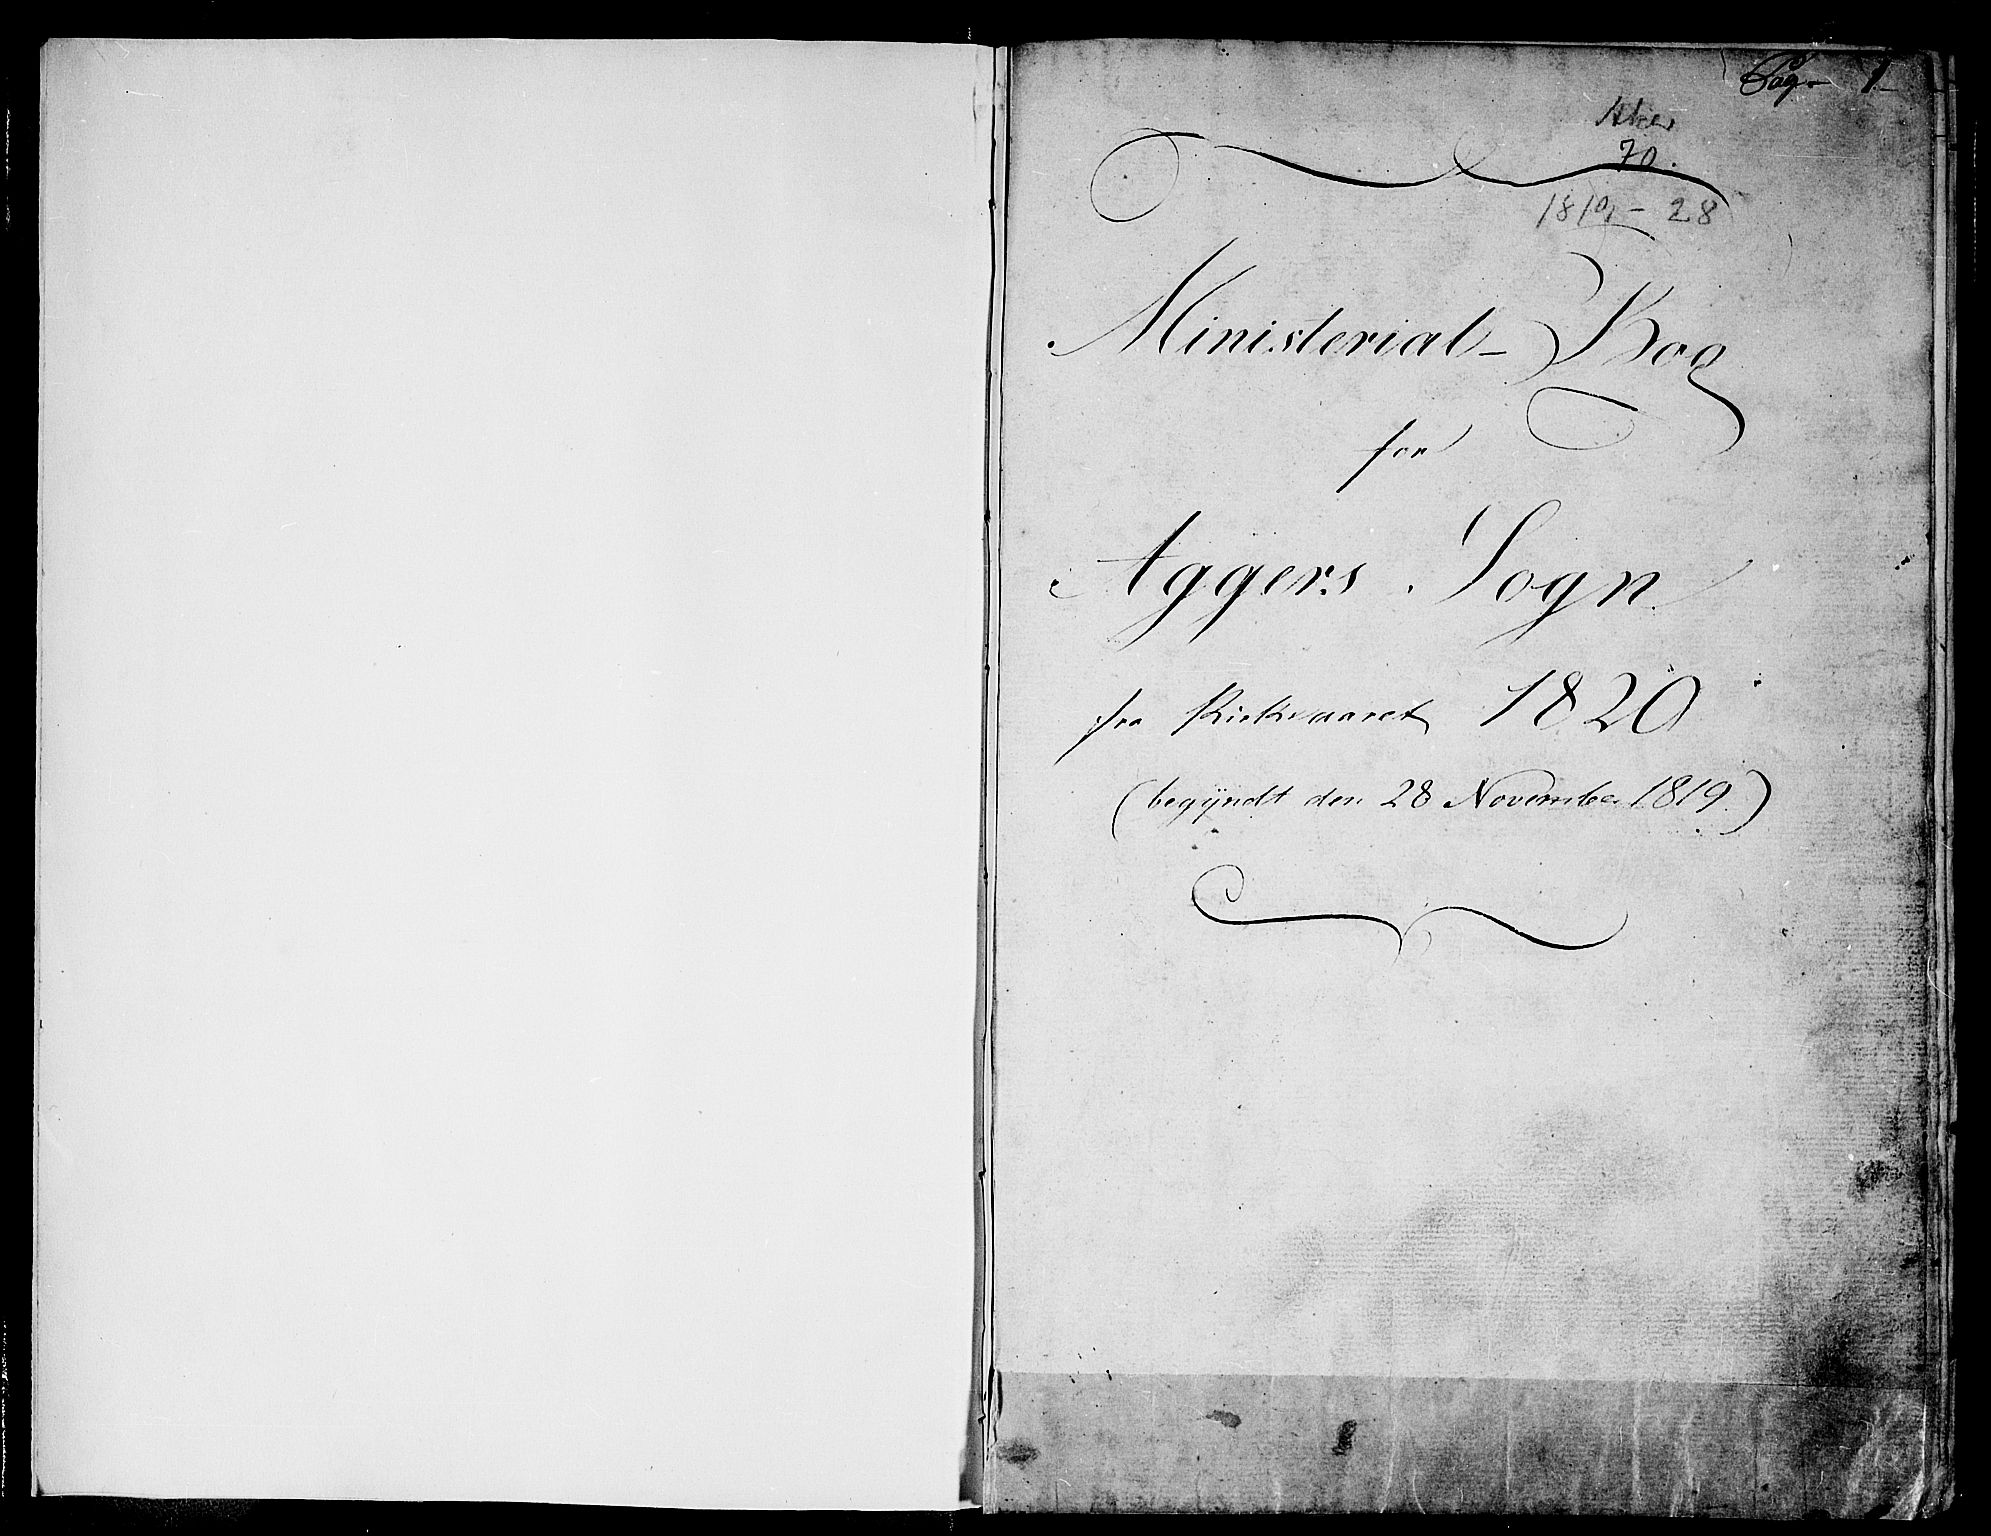 Pag. 1.
Aker
70.
1819 - 28
Ministerial-Bog
for
Aggers Sogn
fra Kirkeaaret 1820
(begÿndt den 28 November 1819.)